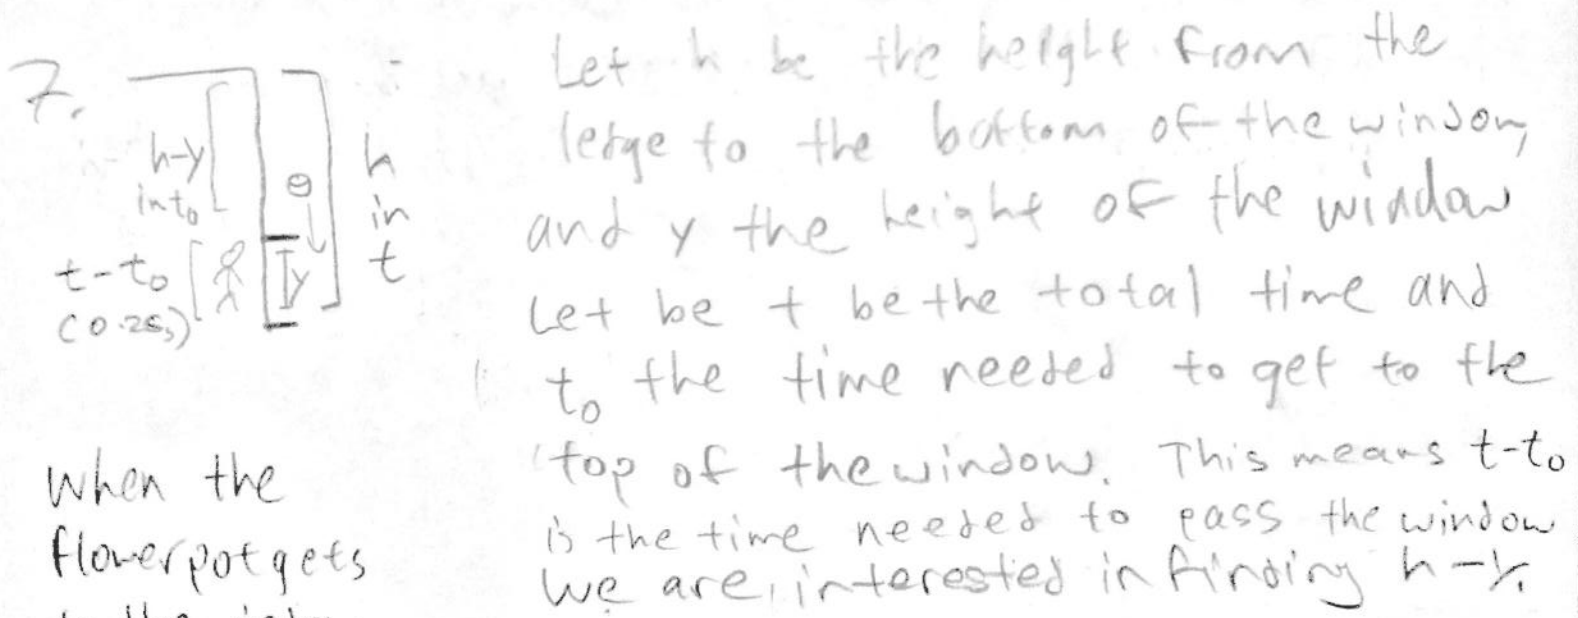 7.
h-y
in to
t-to
(0.25s)
y
h
in
t
Let h be the height from the
ledge to the bottom of the window,
and y the height of the window
Let be t be the total time and
to the time needed to get to the
top of the window. This means t-to
is the time needed to pass the window
We are interested in finding h-y.
When the
flowerpot gets